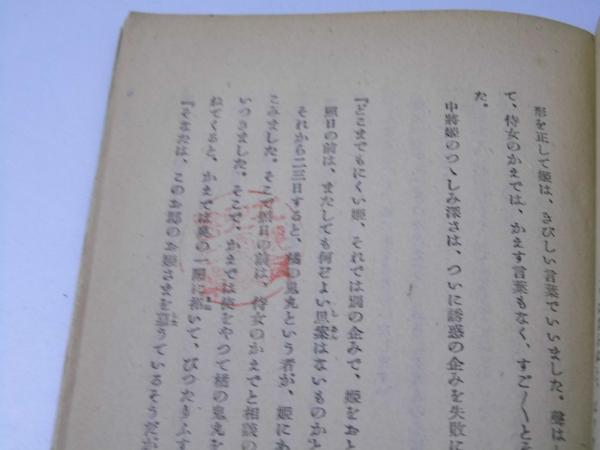 形を正して姫は、さびしい言葉でいいました。聲は
て、侍女のかえでは、かえす言葉もなく、すご〳〵と
た。
中將姫のつゝしみ深さは、ついに誘惑の企みを失敗に
『どこまでもにくい姫、それでは別の企みで、姫をおと
照日の前は、またしても何ぞよい思案はないものかと
しあん
それから二三日すると、橘の鬼丸という者が、姫に
こみました。そこで照日の前は、侍女のかえでと相談の
いつきました。そこで、かえでは使をやつて橘の鬼丸を
ねてくると、かえでは奥の一間に招いて、ぴつたりふす
『そなたは、このお邸のお姫さまを慕うているそうだが
した